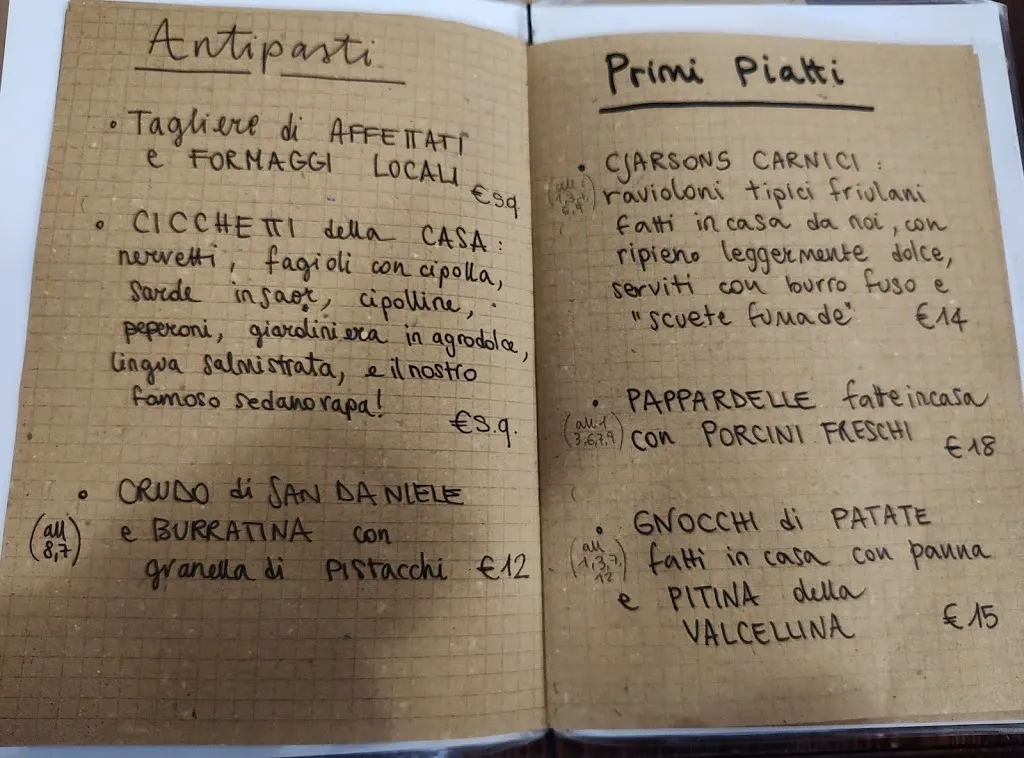 Antipasti
• Tagliere di AFFETTATI
e FORMAGGI LOCALI
€ s.q.
• CICCHETTI della CASA:
nervetti, fagioli con cipolla,
sarde in saor, cipolline,
peperoni, giardiniera in agrodolce,
lingua salmistrata, e il nostro
famoso sedano rapa!
€ s.q.
• CRUDO di SAN DANIELE
(all 8,7) e BURRATINA con
granella di PISTACCHI €12
Primi Piatti
• CJARSONS CARNICI:
ravioloni tipici friulani
fatti in casa da noi, con
ripieno leggermente dolce,
serviti con burro fuso e
"scuete fumade" €14
• PAPPARDELLE fatte in casa
(all 1 3,6,7,9) con PORCINI FRESCHI €18
• GNOCCHI di PATATE
(all 1,3,7 12) fatti in casa con panna
e PITINA della
VALCELLINA €15